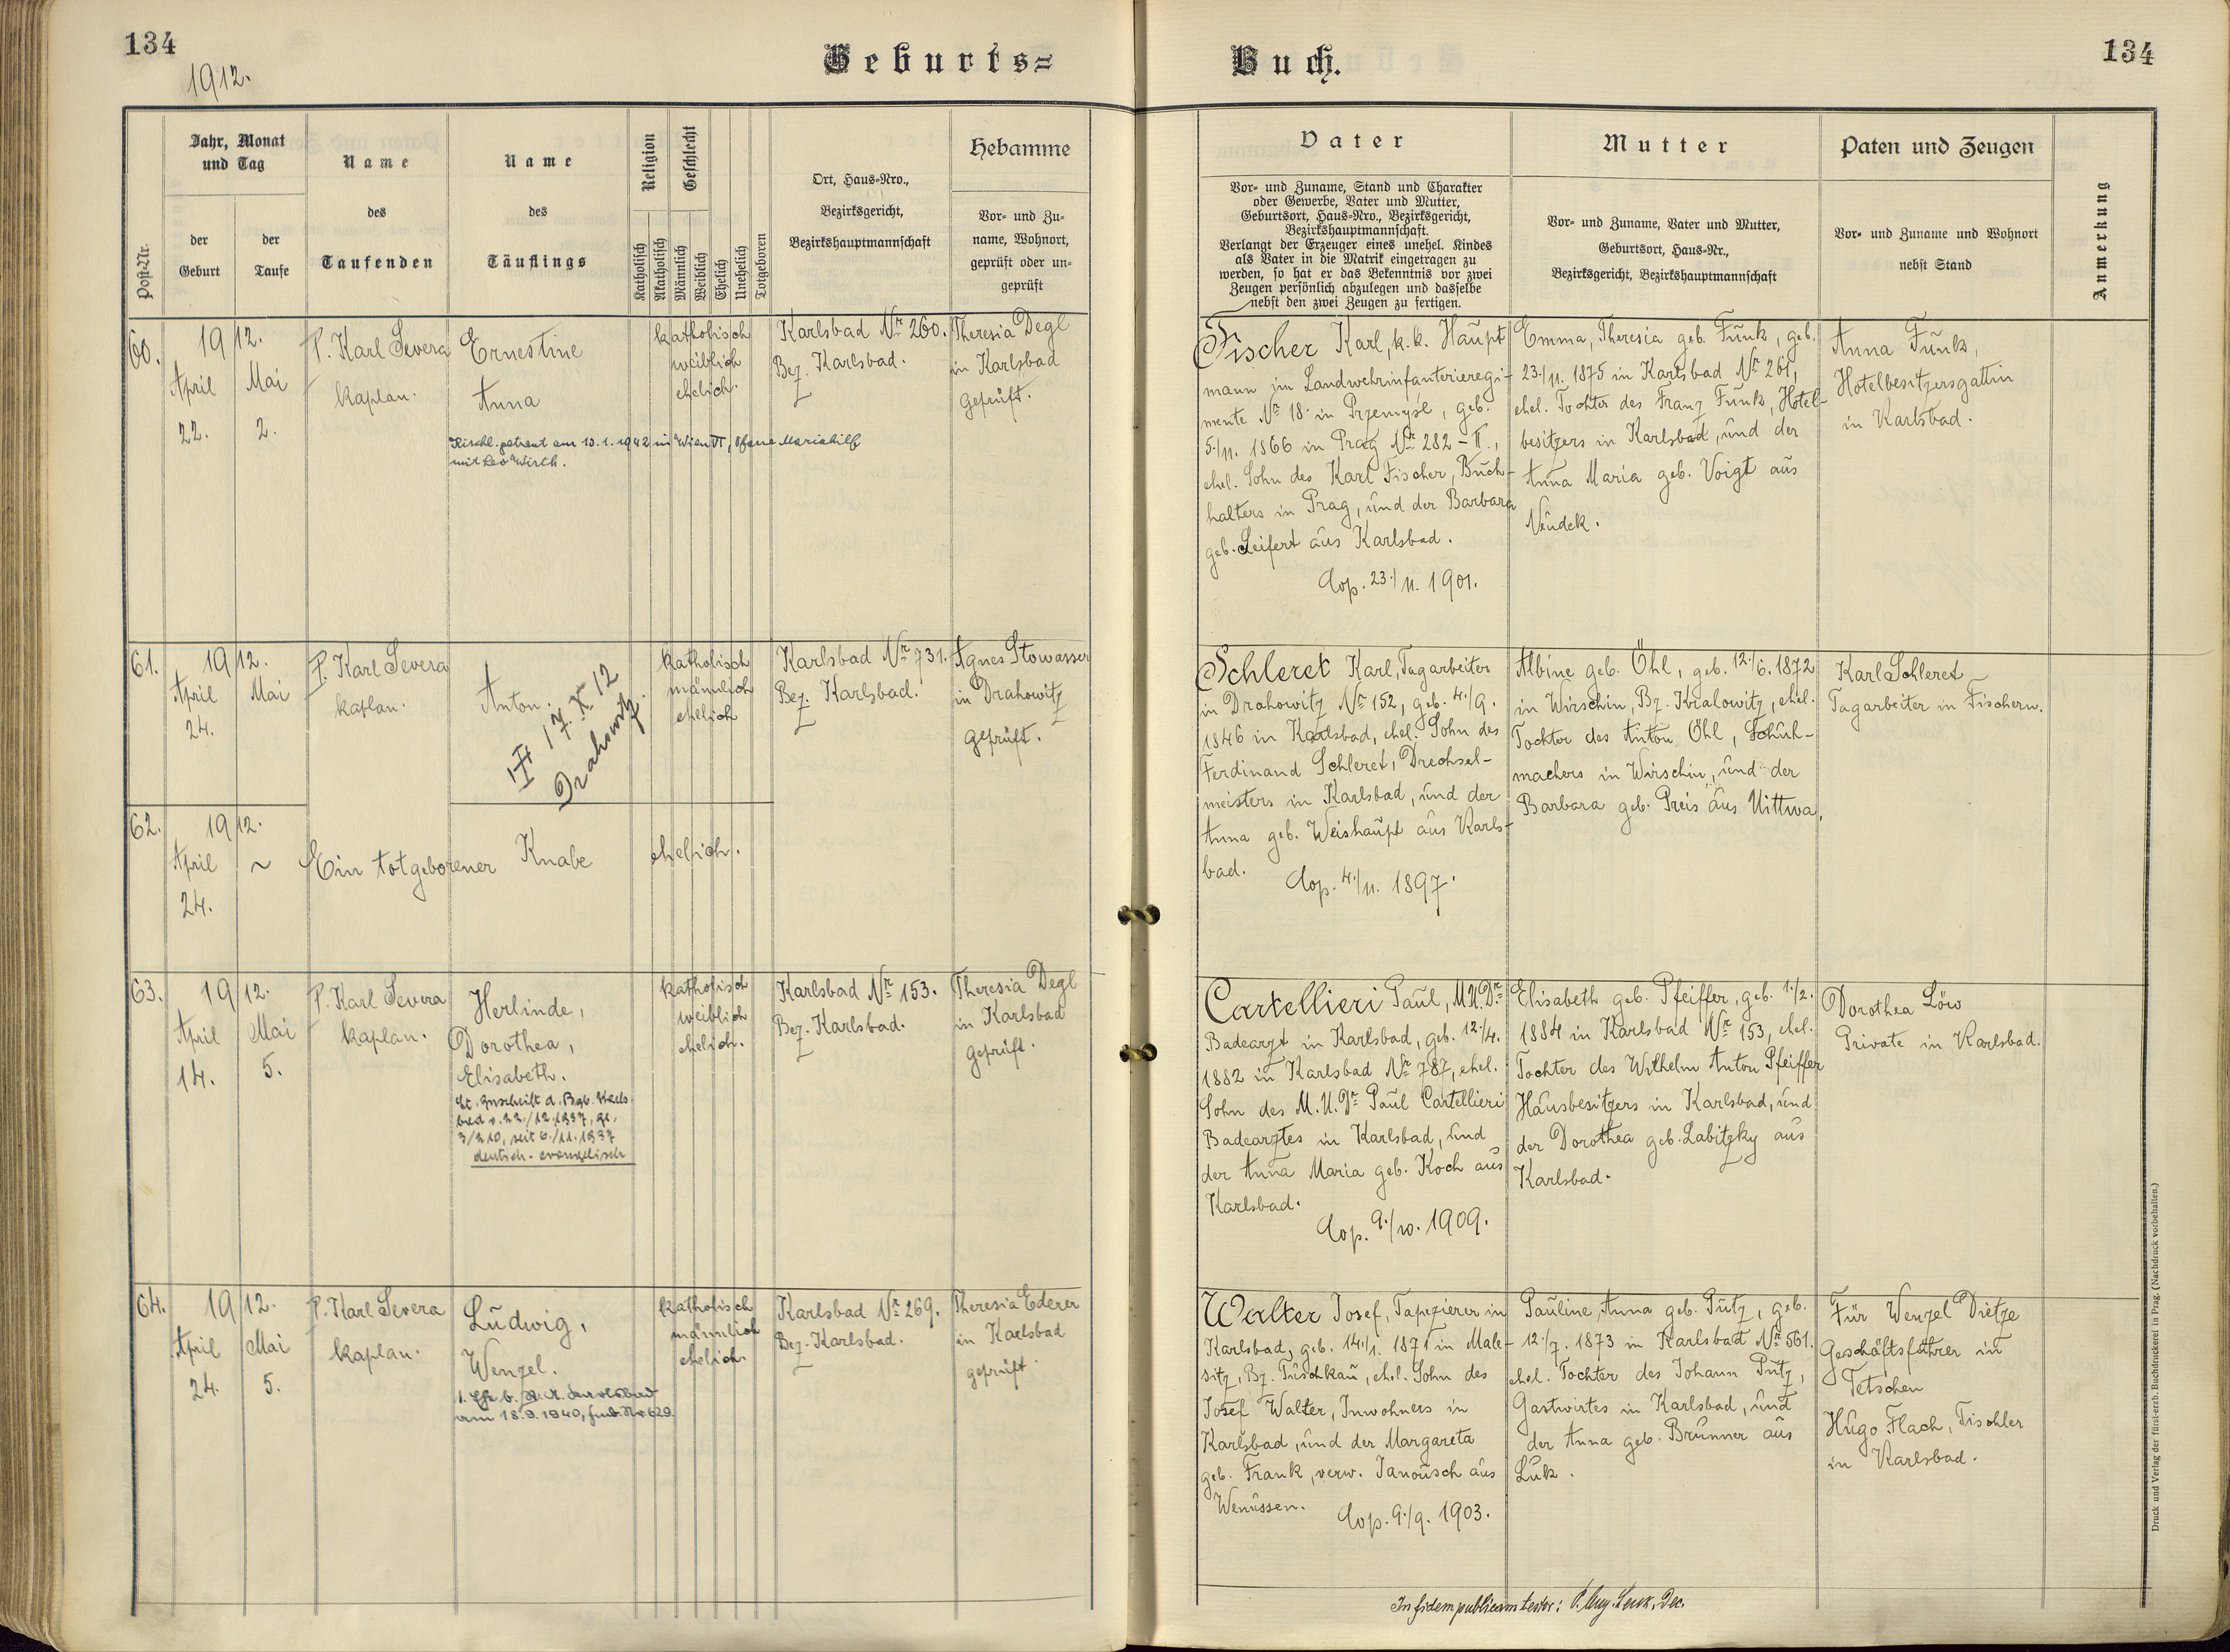 134
1912.
Geburts=
Post-Nr.
Jahr, Monat
und Tag
der
Geburt
der
Taufe
Name
des
Taufenden
Name
des
Täuflings
Religion
Geschlecht
Katholisch
Akatholisch
Männlich
Weiblich
Ehelich
Unehelich
Totgeboren
Ort, Haus-Nro.,
Bezirksgericht,
Bezirkshauptmannschaft
Hebamme
Vor- und Zu-
name, Wohnort,
geprüft oder un-
geprüft
60.
1912.
April
22.
Mai
2.
P. Karl Severa
kaplan.
Ernestine
Anna
Kirchl. getraut am 10.1.1942 in Wien VI, Pfarre Mariahilf
mit Leo Wirth.
katholisch
weiblich
ehelich.
Karlsbad Nr 260.
Bez. Karlsbad.
Theresia Degl
in Karlsbad
geprüft.
61.
1912.
April
24.
Mai
P. Karl Severa
kaplan.
Anton.
17. X 12
Drahowitz.
katholisch
männlich
ehelich
Karlsbad Nr 731.
Bez. Karlsbad.
Agnes Stowasser
in Drahowitz
geprüft.
62.
1912.
April
24.
~
Ein totgeborener Knabe
ehelich.
63.
1912.
April
14.
Mai
5.
P. Karl Severa
kaplan.
Herlinde,
Dorothea,
Elisabeth.
Lt. Zuschrift d. Bzb. Karls-
bad v. 22./12.1937, Zl.
3/210, seit 6./11.1937
deutsch-evangelisch
katholisch
weiblich
ehelich.
Karlsbad Nr 153.
Bez. Karlsbad.
Theresia Degl
in Karlsbad
geprüft.
64.
1912.
April
24.
Mai
5.
P. Karl Severa
kaplan.
Ludwig,
Wenzel.
1. Ehe b. St. A. Karlsbad
am 18.9.1940, fmb. Nr 629.
katholisch
männlich
ehelich.
Karlsbad Nr 269.
Bez. Karlsbad.
Theresia Ederer
in Karlsbad
geprüft.
Buch.
134
Vater
Vor- und Zuname, Stand und Charakter
oder Gewerbe, Vater und Mutter,
Geburtsort, Haus-Nro., Bezirksgericht,
Bezirkshauptmannschaft.
Verlangt der Erzeuger eines unehel. Kindes
als Vater in die Matrik eingetragen zu
werden, so hat er das Bekenntnis vor zwei
Zeugen persönlich abzulegen und dasselbe
nebst den zwei Zeugen zu fertigen.
Mutter
Vor- und Zuname, Vater und Mutter,
Geburtsort, Haus-Nr.,
Bezirksgericht, Bezirkshauptmannschaft
Paten und Zeugen
Vor- und Zuname und Wohnort
nebst Stand
Anmerkung
Fischer Karl, k.k. Haupt
mann im Landwehrinfanterieregi-
mente Nr 18 in Przemyśl, geb.
5./11. 1866 in Prag Nr 282-II.,
ehel. Sohn des Karl Fischer, Buch-
halters in Prag, und der Barbara
geb. Seifert aus Karlsbad.
Cop. 23./11. 1901.
Emma, Theresia geb. Funk, geb.
23./11. 1875 in Karlsbad Nr 261,
ehel. Tochter des Franz Funk, Hotel-
besitzers in Karlsbad, und der
Anna Maria geb. Voigt aus
Neudek.
Anna Funk,
Hotelbesitzersgattin
in Karlsbad.
Schleret Karl, Tagarbeiter
in Drahowitz Nr 152, geb. 4./9.
1846 in Karlsbad, ehel. Sohn des
Ferdinand Schleret, Drechsel-
meisters in Karlsbad, und der
Anna geb. Weishaupt aus Karls-
bad.
Cop. 4./11. 1897.
Albine geb. Öhl, geb. 12./6. 1872
in Wirschin, Bz. Kralowitz, ehel.
Tochter des Anton Öhl, Schuh-
machers in Wirschin, und der
Barbara geb. Preis aus Uittwa.
Karl Schleret
Tagarbeiter in Fischern.
Cartellieri Paul, M.U.Dr
Badearzt in Karlsbad, geb. 12./4.
1882 in Karlsbad Nr 787, ehel.
Sohn des M.U.Dr Paul Cartellieri
Badearztes in Karlsbad, und
der Anna Maria geb. Koch aus
Karlsbad.
Cop. 9./10. 1909.
Elisabeth geb. Pfeiffer, geb. 1./2.
1884 in Karlsbad Nr 153, ehel.
Tochter des Wilhelm Anton Pfeiffer
Hausbesitzers in Karlsbad, und
der Dorothea geb. Labitzky aus
Karlsbad.
Dorothea Löw
Private in Karlsbad.
Walter Josef, Tapezierer in
Karlsbad, geb. 14./1. 1871 in Male-
sitz, Bz. Tuschkau, ehel. Sohn des
Josef Walter, Inwohners in
Karlsbad, und der Margareta
geb. Frank, verw. Janousch aus
Wenussen.
Cop. 9./9. 1903.
Pauline, Anna geb. Putz, geb.
12./7. 1873 in Karlsbad Nr 561.
ehel. Tochter des Johann Putz,
Gastwirtes in Karlsbad, und
der Anna geb. Brunner aus
Luk.
Für Wenzel Dietze
Geschäftsführer in
Tetschen
Hugo Flach, Tischler
in Karlsbad.
In fidem publicam testor: P. Aug. Lenk, Dec.
Druck und Verlag der fürst-erzb. Buchdruckerei in Prag. (Nachdruck vorbehalten.)